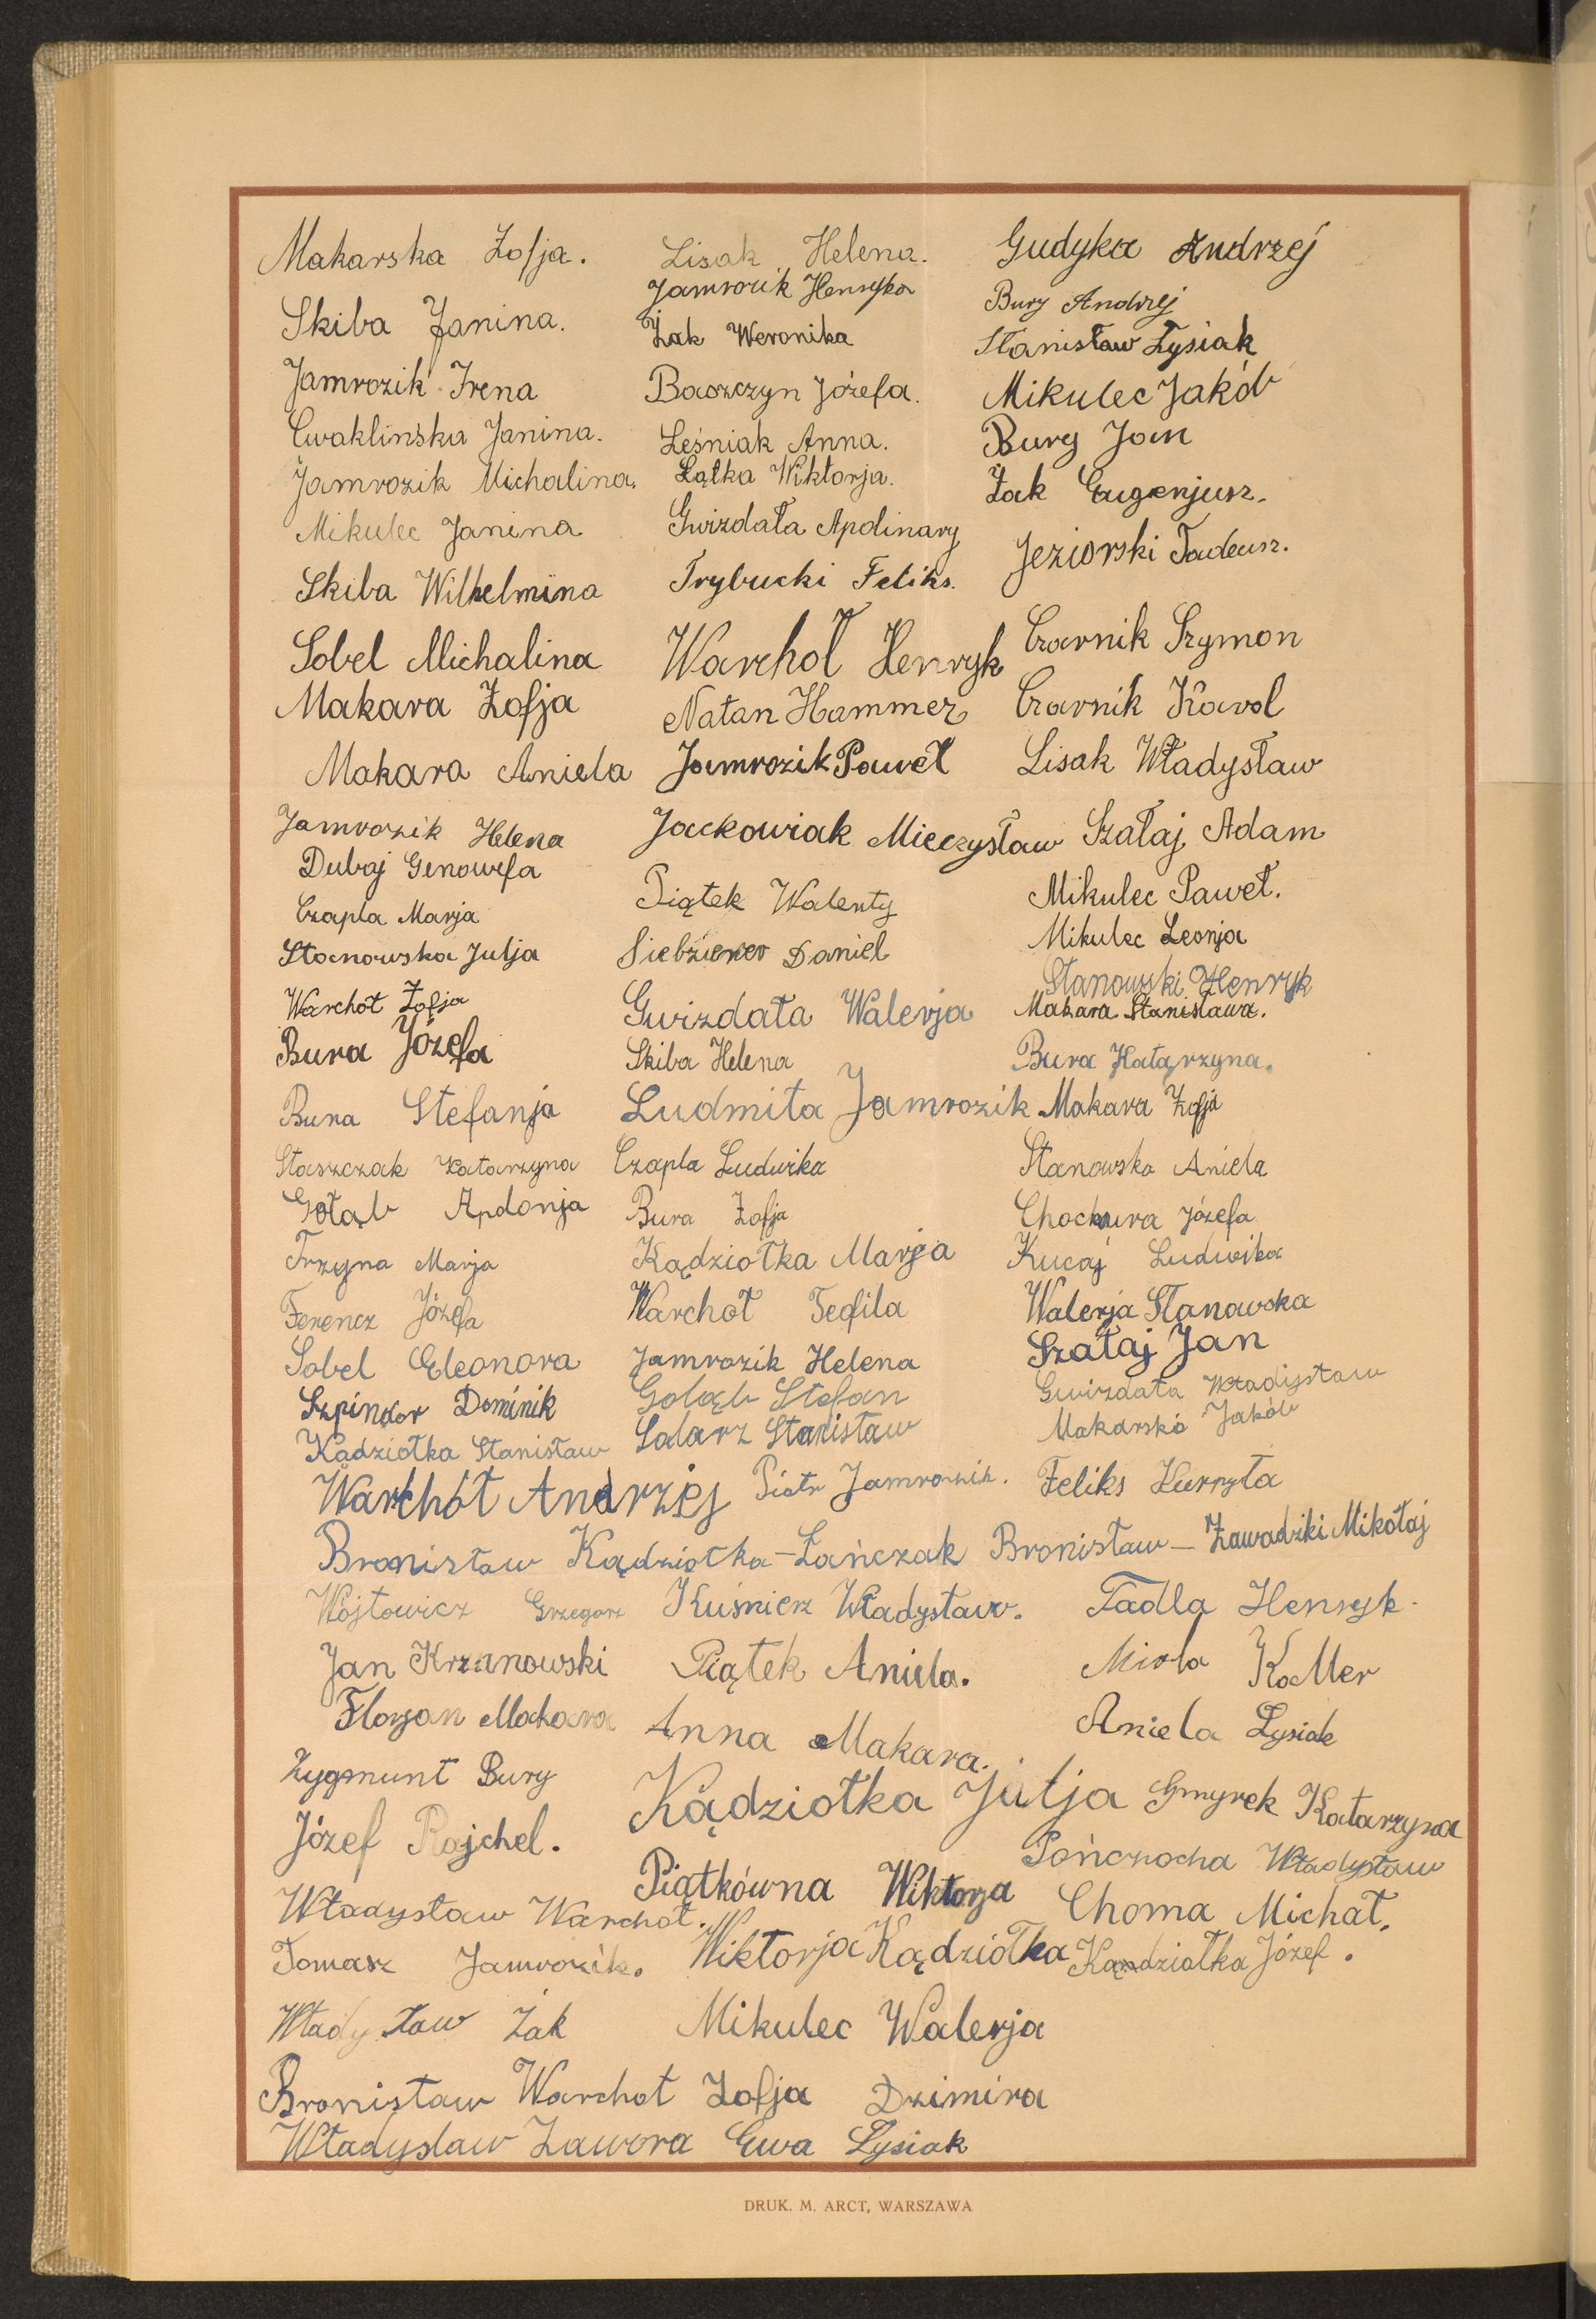 Makarska Zofja.
Skiba Janina.
Jamrozik Irena
Ćwaklińska Janina.
Jamrozik Michalina.
Mikulec Janina
Skiba Wilhelmina
Sobel Michalina
Makara Zofja
Makara Aniela
Jamrozik Helena
Dubaj Genowefa
Czapla Marja
Stanowska Julja
Warchoł Zofja
Bura Józefa
Bura Stefanja
Staszczak Katarzyna
Gołąb Apolonja
Trzyna Marja
Ferencz Józefa
Sobel Eleonora
Szpindor Dominik
Kądziołka Stanisław
Warchół Andrzej
Lisak Helena.
Jamrozik Henryka
Żak Weronika
Baszczyn Józefa.
Leśniak Anna.
Łątka Wiktorja.
Gwizdała Apolinary
Trybucki Feliks.
Warchoł Henryk
Natan Hammer
Jamrozik Paweł
Jackowiak Mieczysław
Piątek Walenty
Siebziener Daniel
Gwizdała Walerja
Skiba Helena
Ludmiła Jamrozik
Czapla Ludwika
Bura Zofja
Kądziołka Marja
Warchoł Teofila
Jamrozik Helena
Gołąb Stefan
Solarz Stanisław
Piotr Jamrozik.
Gudyka Andrzej
Bury Andrzej
Stanisław Łysiak
Mikulec Jakób
Bury Jan
Żak Eugenjusz.
Jeziorski Tadeusz.
Czarnik Szymon
Czarnik Karol
Lisak Władysław
Szałaj Adam
Mikulec Paweł.
Mikulec Leonja
Stanowski Henryk
Makara Stanisława.
Bura Katarzyna.
Makara Zofja
Stanowska Aniela
Chochura Józefa
Kucaj Ludwika
Walerja Stanowska
Szałaj Jan
Gwizdała Władysław
Makarski Jakób
Feliks Kurzyła
Bronisław Kądziołka – Łańczak Bronisław – Zawadzki Mikołaj
Wójtowicz Grzegorz Kuśnierz Władysław. Fadla Henryk.
Jan Krzanowski Piątek Aniela. Koller
Florjan Makara Anna Makara. Aniela Łysiak
Zygmunt Bury Kądziołka Julja Gmyrek Katarzyna
Józef Rajchel. Piątkówna Wiktorja Pończocha Władysław
Władysław Warchoł. Choma Michał.
Tomasz Jamrozik. Wiktorja Kądziołka Kądziołka Józef.
Władysław Żak Mikulec Walerja
Bronisław Warchoł Zofja Dzimira
Władysław Zawora Ewa Łysiak
DRUK. M. ARCT, WARSZAWA